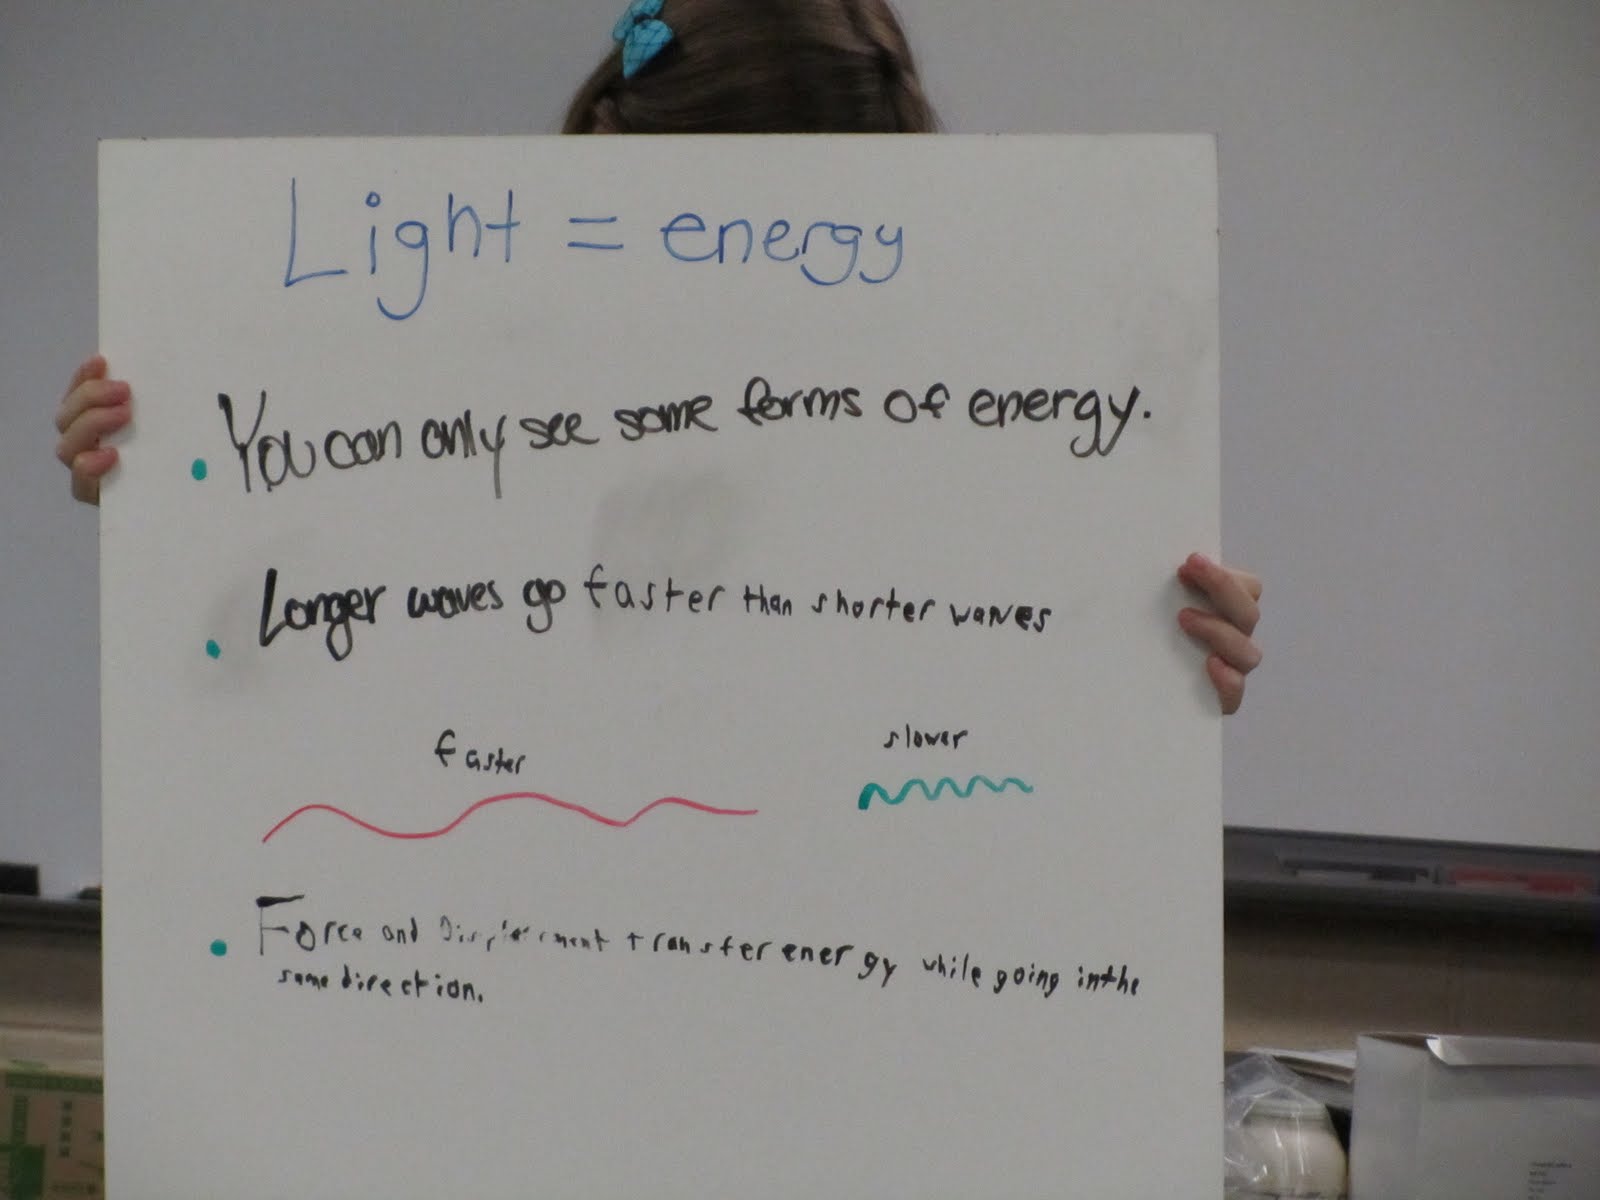 Light = energy
• You can only see some forms of energy.
• Longer waves go faster than shorter waves
faster
slower
• Force and Displacement transfer energy while going in the
same direction.